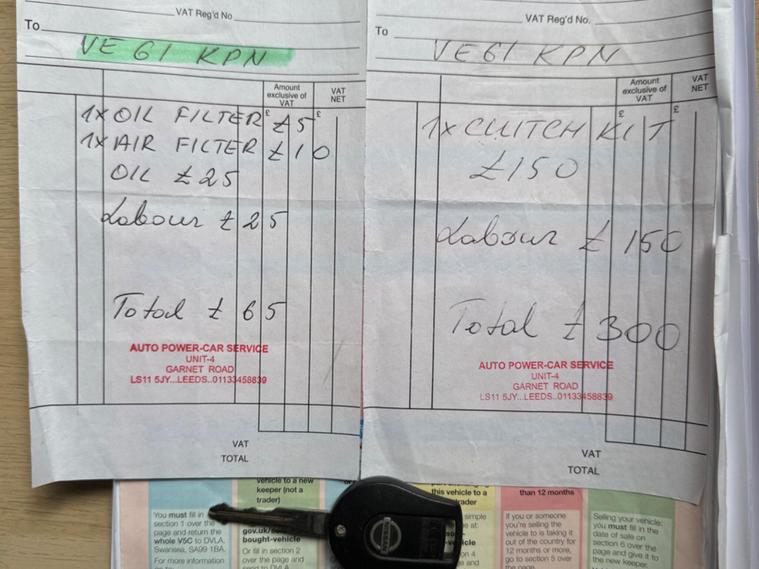 VAT Reg'd No
To
VE61 KPN
Amount exclusive of VAT
VAT NET
£ £
1x OIL FILTER £5
1x AIR FILTER £10
OIL £25
Labour £25
Total £65
AUTO POWER-CAR SERVICE
UNIT-4
GARNET ROAD
LS11 5JY...LEEDS..01133458839
VAT
TOTAL
VAT Reg'd No.
To
VE61 KPN
Amount exclusive of VAT
VAT NET
£ £
1x CLUTCH KIT
£150
Labour £150
Total £300
AUTO POWER-CAR SERVICE
UNIT-4
GARNET ROAD
LS11 5JY...LEEDS..01133458839
VAT
TOTAL
You must fill in
section 1 over the
page and return the
whole V5C to DVLA,
Swansea, SA99 1BA.
For more information
vehicle to a new
keeper (not a
trader)
gov.uk/
bought-vehicle
Or fill in section 2
over the page and
this vehicle to a
trader
simple
than 12 months
If you or someone
you're selling the
vehicle to is taking it
out of the country for
12 months or more,
go to section 5 over
the page.
Selling your vehicle:
you must fill in the
date of sale on
section 6 over the
page and give it to
the new keeper.
NISSAN